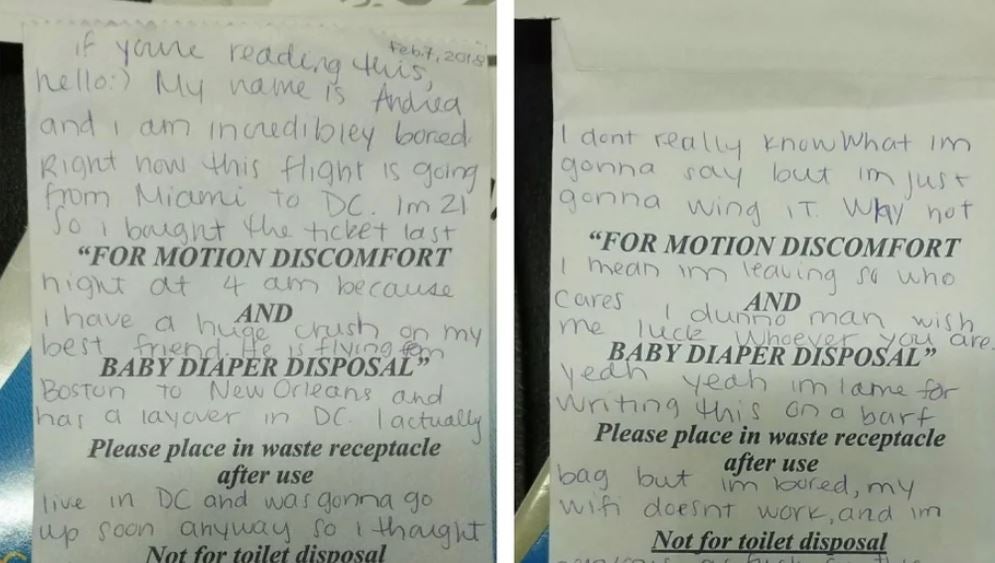 Feb. 7, 2018
if youre reading this,
hello:) My name is Andrea
and i am incredibley bored.
Right now this flight is going
from Miami to DC. Im 21
So i bought the ticket last
"FOR MOTION DISCOMFORT
night at 4 am because
AND
I have a huge crush on my
best friend. He is flying from
BABY DIAPER DISPOSAL"
Boston to New Orleans and
has a layover in DC. I actually
Please place in waste receptacle
after use
live in DC and was gonna go
up soon anyway so i thought
Not for toilet disposal
I dont really know What im
gonna say but im just
gonna wing IT. Why not
"FOR MOTION DISCOMFORT
I mean im leaving so who
cares I dunno man wish
AND
me luck whoever you are.
BABY DIAPER DISPOSAL"
yeah yeah im lame for
writing this on a barf
Please place in waste receptacle
after use
bag but im bored, my
wifi doesnt work, and im
Not for toilet disposal